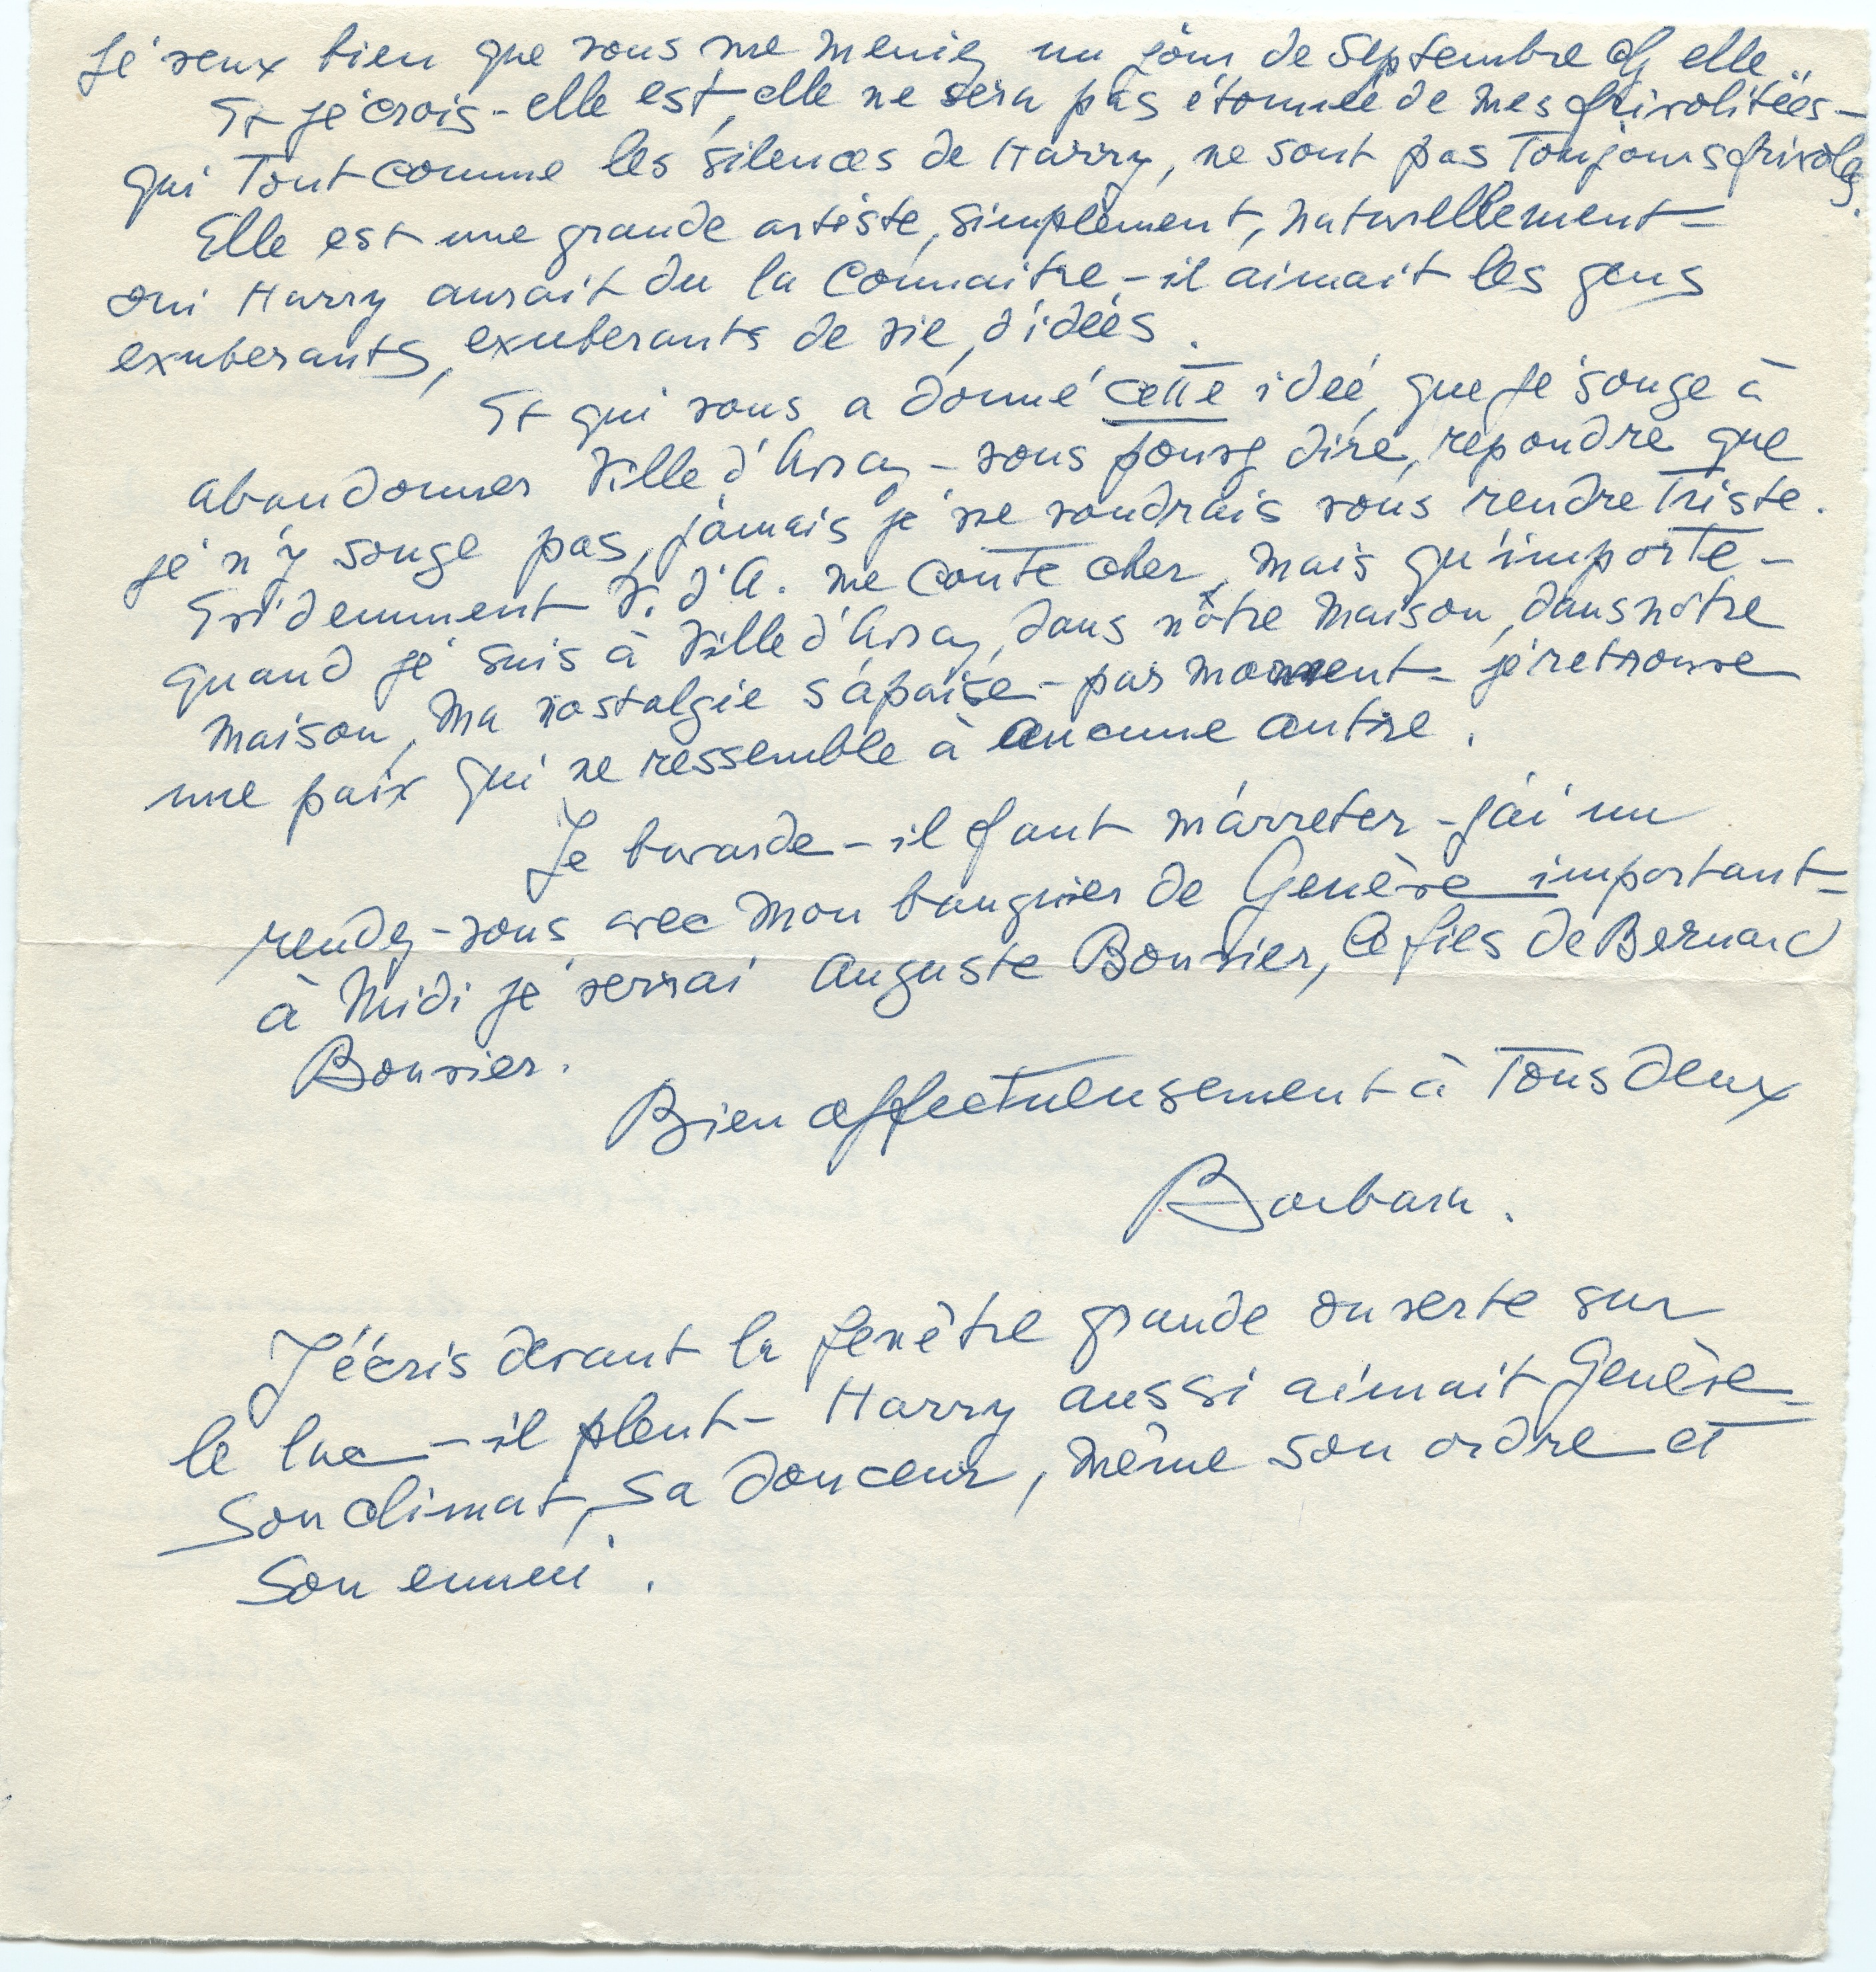 Je veux bien que vous me meniez un jour de Septembre chez elle..
Et je crois - elle est, elle ne sera pas étonnée de mes frivolitées -
qui Tout comme les silences de Harry, ne sont pas Toujours frivoles.
Elle est une grande artiste, simplement, naturellement -
oui Harry aurait du la connaitre - il aimait les gens
exuberants, exuberants de vie, d'idées.
Et qui vous a donné cette idée, que je songe à
abandonner Ville d'Avray - vous pouvez dire, répondre que
je n'y songe pas, jamais je ne voudrais vous rendre Triste.
Evidemment V. d'A. me coute cher, mais qu'importe -
quand je suis à Ville d'Avray, dans nôtre maison, dans nôtre
maison, ma nostalgie s'apaise - par moment - je retrouve
une paix qui ne ressemble à aucune autre.
Je bavarde - il faut m'arreter - j'ai un
rendez-vous avec mon banquier de Genève important -
à Midi je verrai Auguste Bouvier, le fils de Bernard
Bouvier.
Bien affectueusement à Tous deux
Barbara.
J'écris devant la fenêtre grande ouverte sur
le lac - il pleut - Harry aussi aimait Genève -
Son climat, sa douceur, même son ordre et
Son ennui.